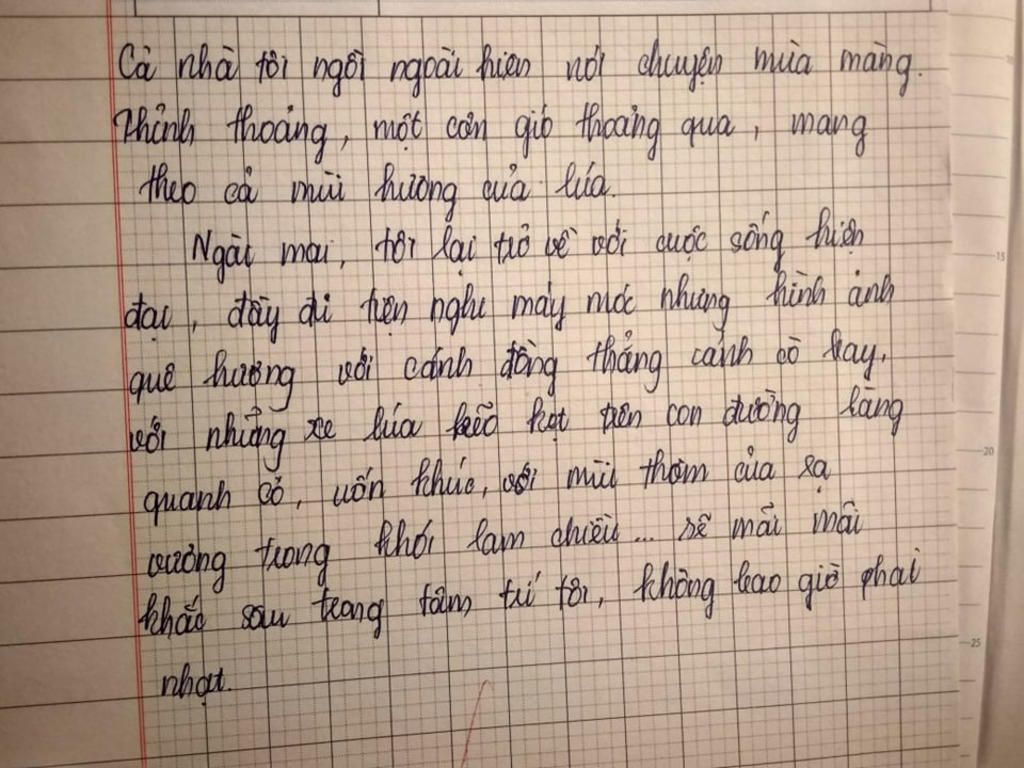 Cả nhà tôi ngồi ngoài hiên nói chuyện mùa màng.
Thỉnh thoảng, một cơn gió thoảng qua, mang
theo cả mùi hương của lúa.
Ngài mai, tôi lại trở về với cuộc sống hiện
đại, đầy đủ tiện nghi máy móc nhưng hình ảnh
quê hương với cánh đồng thẳng cánh cò bay,
với những xe lúa kẽo kẹt trên con đường làng
quanh cỏ, uốn khúc, với mùi thơm của rạ
vương trong khói lam chiều... sẽ mãi mãi
khắc sâu trong tâm trí tôi, không bao giờ phai
nhạt.